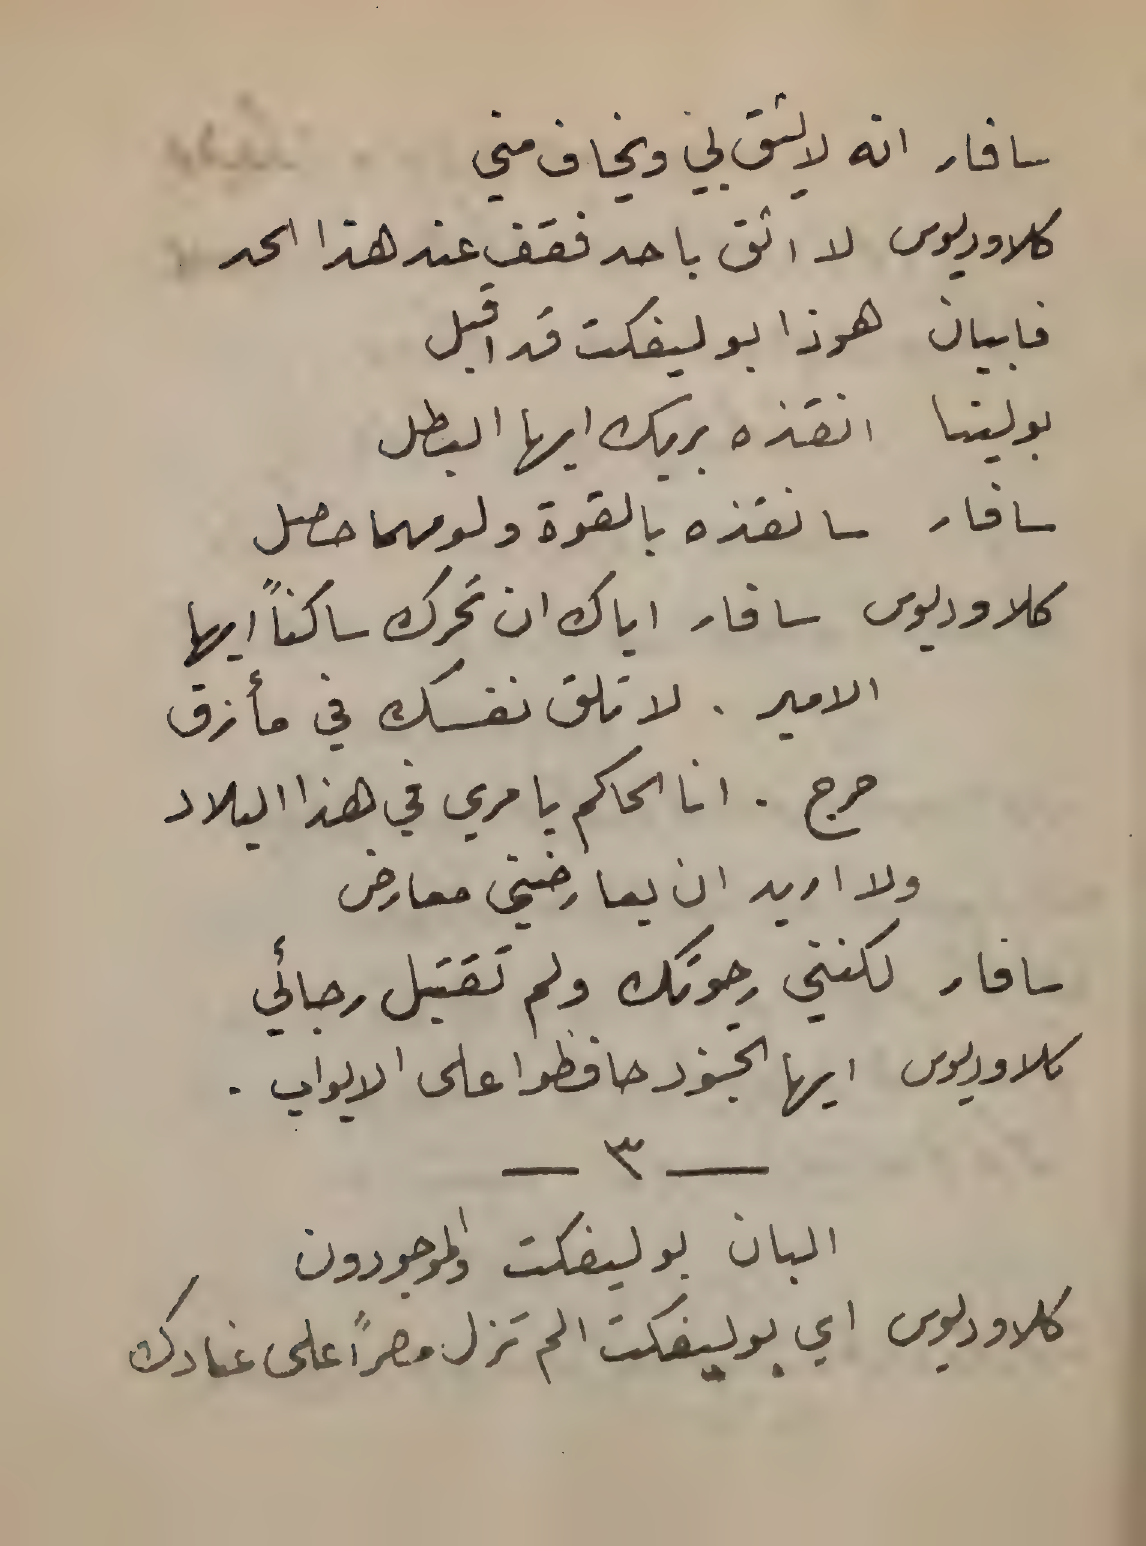 سافار انه لا يثق بي ويخاف مني
كلاوديوس لا اثق باحد فقف عند هذا الحد
فابيان هوذا بوليفكت قد اقبل
بولينا انقذه بربك ايها البطل
سافار سانقذه بالقوة ولو مهما حصل
كلاوديوس سافار اياك ان تحرك ساكناً ايها
الامير . لا تلق نفسك في مأزق
حرج . انا الحاكم بامري في هذا البلاد
ولا اريد ان يعارضني معارض
سافار لكنني رجوتك ولم تقتبل رجائي
كلاوديوس ايها الجنود حافظوا على الابواب .
— ٣ —
البان بوليفكت والموجودون
كلاوديوس اي بوليفكت الم تزل مصراً على عنادك